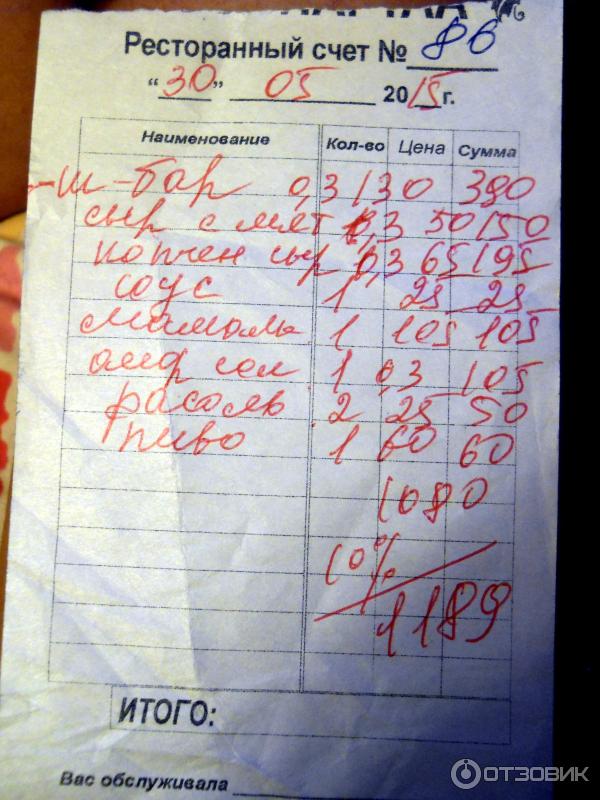 Ресторанный счет № 86
"30" 05 2015г.
Наименование Кол-во Цена Сумма
-ш-бар 0,3 130 390
сыр с мят 0,3 50 150
копчен сыр 0,3 65 195
соус 1 25 25
мамалы 1 105 105
1 0,3 105
рассоль 2 25 50
пиво 1 60 60
1080
10%
1189
ИТОГО:
Вас обслуживала
ОТЗОВИК